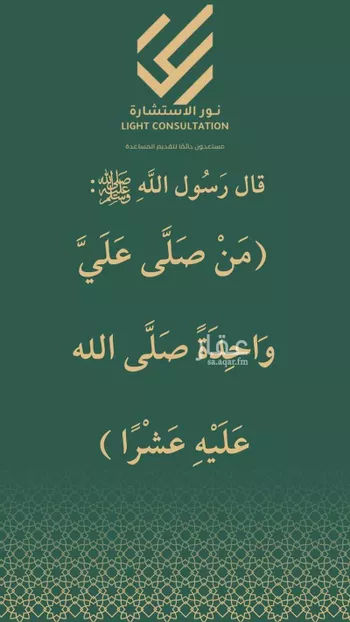 نور الاستشارة
LIGHT CONSULTATION
مساعدون دائمًا لتقديم المساعدة
قال رَسُول اللَّهِ ﷺ:
(مَنْ صَلَّى عَلَيَّ
وَاحِدَةً صَلَّى الله
عقار
sa.aqar.fm
عَلَيْهِ عَشْرًا )